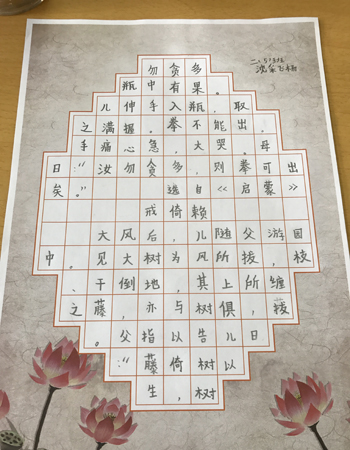 勿贪多
瓶中有果。
儿伸手入瓶，取
之满握。拳不能出，
手痛心急，大哭。母
日：“汝勿贪多，则拳可出
矣。”
选自《启蒙》
戒倚赖
大风后，儿随父游园
中。见大树为风所拔，枝
、干倒地，其上所缠
之藤，亦与树俱
。父指以告儿日
：“藤倚树以
生，树